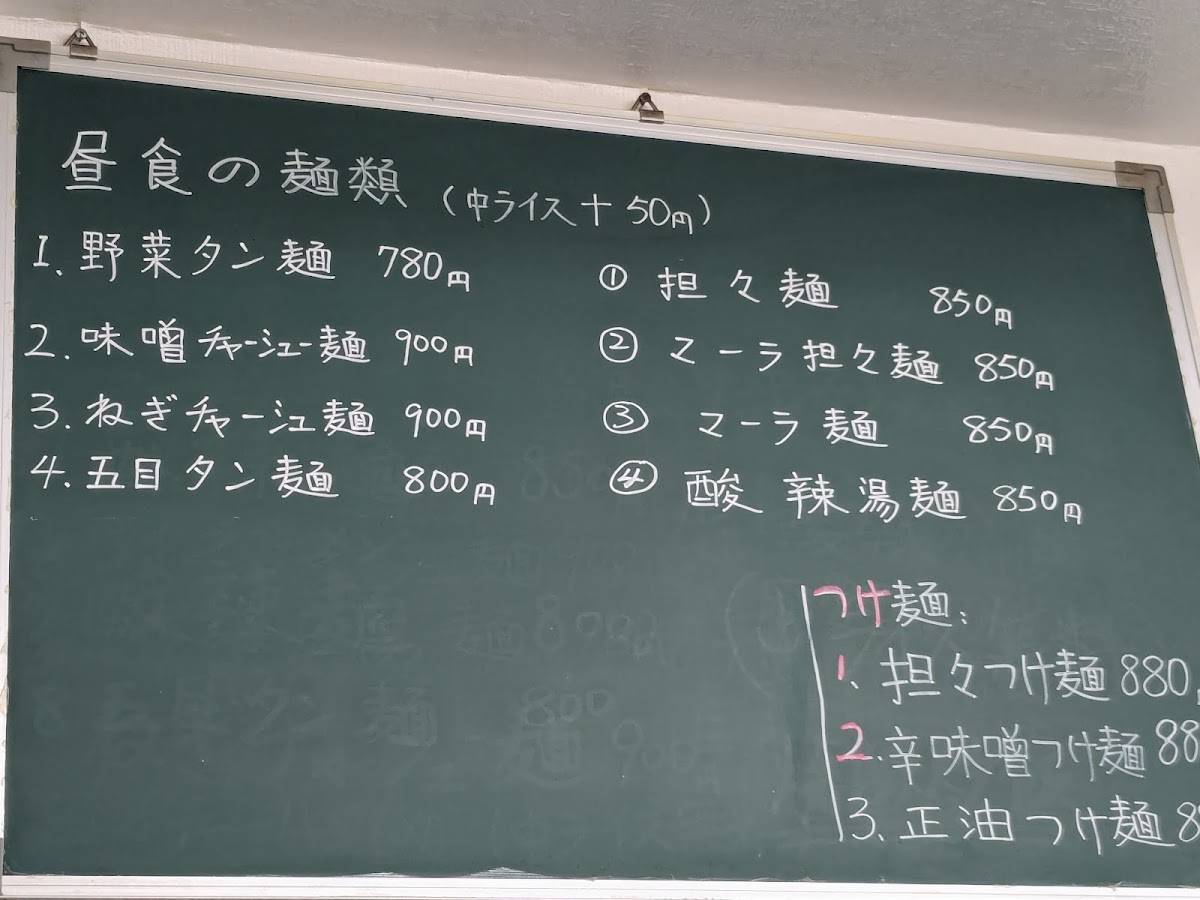 昼食の麺類 (中ライス+50円)
1、野菜タン麺 780円
2.味噌チャーシュー麺 900円
3.ねぎチャーシュ麺 900円
4.五目タン麺 800円
① 担々麺 850円
② マーラ担々麺 850円
③ マーラ麺 850円
④ 酸辣湯麺 850円
つけ麺:
1、担々つけ麺 880
2.辛味噌つけ麺 88
3、正油つけ麺